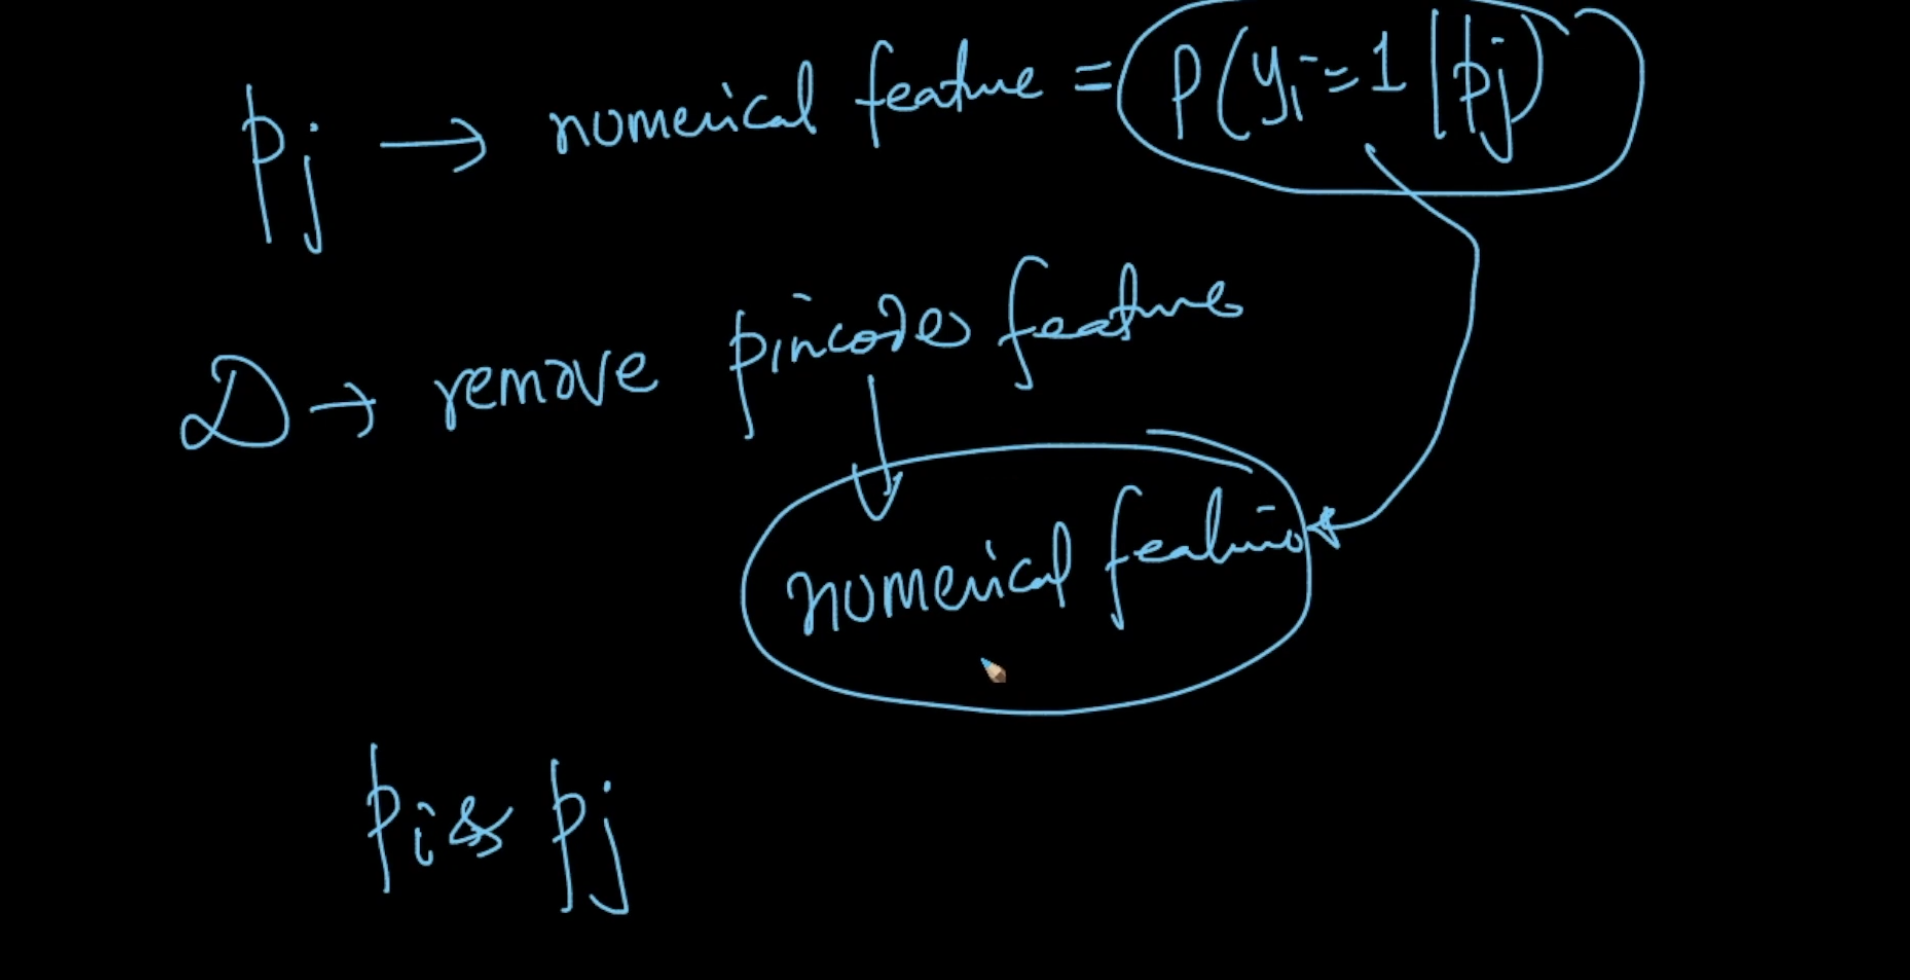 pj → numerical feature = P(yi=1|pj)
D → remove pincodes feature
numerical feature
pi & pj